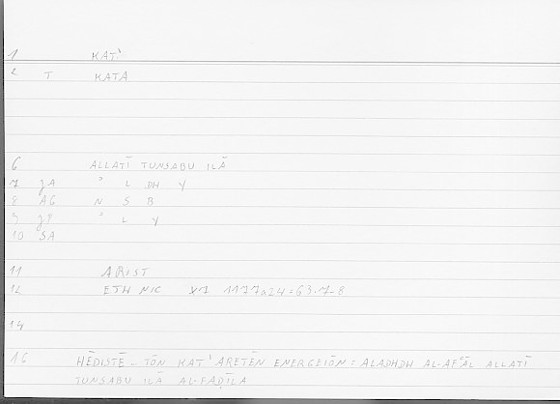 1 KAT'
2 T KATA
6 ALLATĪ TUNSABU ILĀ
7 JA ʾ L DH Y
8 AG N S B
9 JP ʾ L Y
10 SA
11 ARIST
12 ETH NIC X7 1177a24 = 63.7-8
14
16 HĒDISTĒ - TŌN KAT' ARETĒN ENERGEIŌN = ALADHDH AL-AFʿĀL ALLATĪ
TUNSABU ILĀ AL-FAḌĪLA